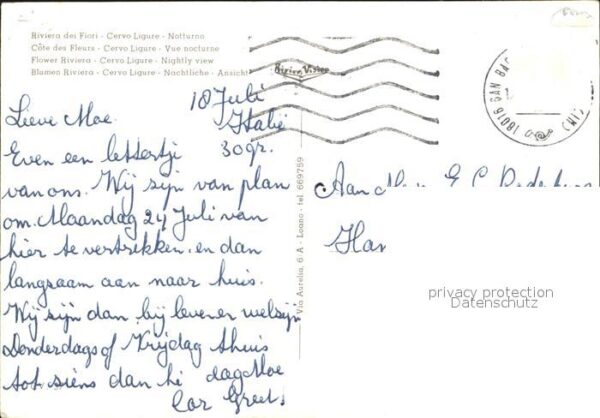 Riviera dei Fiori - Cervo Ligure - Notturno
Côte des Fleurs - Cervo Ligure - Vue nocturne
Flower Riviera - Cervo Ligure - Nightly view
Blumen Riviera - Cervo Ligure - Nachtliche - Ansicht
18016 SAN BA (IM)
18 Juli
Italië
30gr.
Lieve Moe.
Even een lettertje
van ons. Wij sijn van plan
om Maandag 24 Juli van
hier te vertrekken. en dan
langsaam aan naar huis.
Wij sijn dan bij leven en welsijn
Donderdags of Vrijdag thuis
tot siens dan hé dag Moe
Cor Greet.
Via Aurelia, 6 A - Loano - tel. 669759
Aan E C
Har
privacy protection
Datenschutz